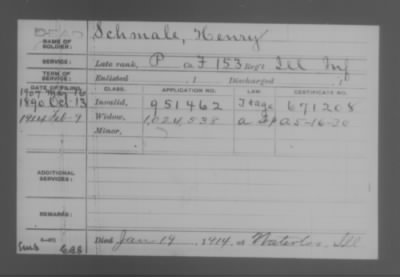 NAME OF SOLDIER: Schmale, Henry
SERVICE: Late rank, P Co. F 153 Reg't Ill Inf
TERM OF SERVICE: Enlisted , 1 Discharged , 1
DATE OF FILING. CLASS. APPLICATION NO. LAW. CERTIFICATE NO.
1907
1890 Oct-13 Invalid, 951462 671208
1914 Feb-9 Widow, 1,024,538
Minor,
ADDITIONAL SERVICES:
REMARKS:
Died Jan 19, 1914, at Waterloo, Ill